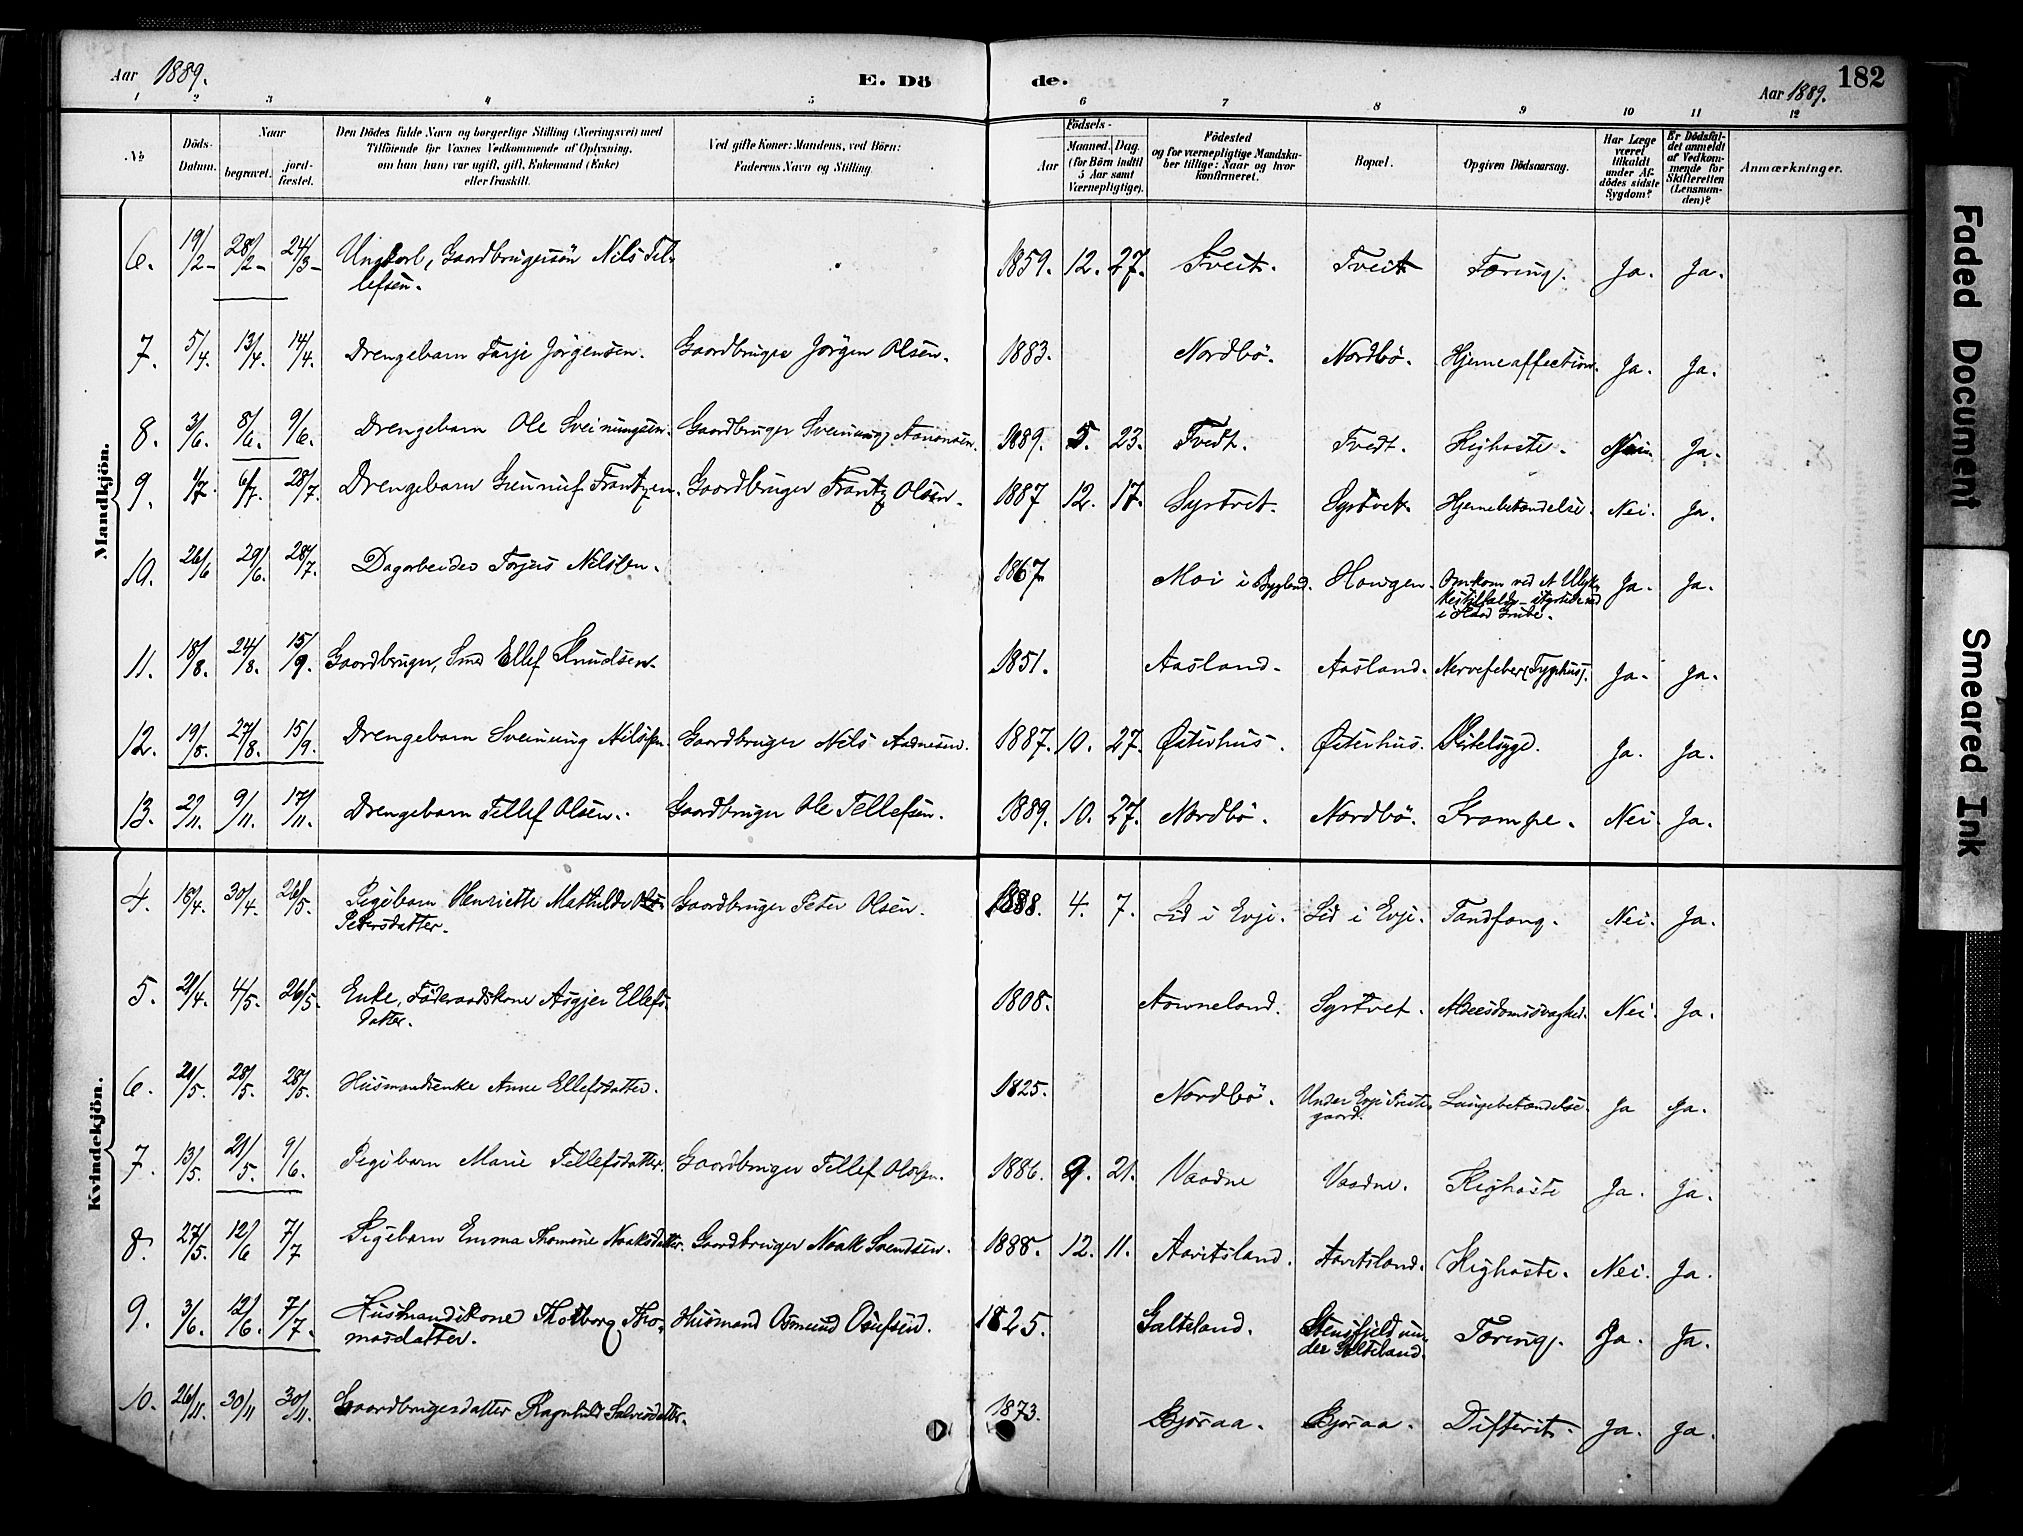 Aar 1889. E. Dö de. Aar 1889. 182
1 2 3 4 5 6 7 8 9 10 11 12
No Döds-Datum. Naar begravet. jordfæstet. Den Dödes fulde Navn og borgerlige Stilling (Næringsvei) med Tilföiende for Voxnes Vedkommende af Oplysning, om han (hun) var ugift, gift, Enkemand (Enke) eller fraskilt. Ved gifte Koner: Mandens, ved Börn: Faderens Navn og Stilling. Födsels- Aar Maaned. Dag. (for Börn indtil 5 Aar samt Værnepligtige). Födested og for værnepligtige Mandskaber tillige: Naar og hvor konfirmeret. Bopæl. Opgiven Dödsaarsag. Har Læge været tilkaldt under Afdödes sidste Sygdom? Er Dödsfaldet anmeldt af Vedkommende for Skifteretten (Lensmanden)? Anmærkninger.
Mandkjön.
6. 19/2- 28/2- 24/3- Ungkarl, Gaardbrugersön Nils Tel-
lefsen. 1859. 12. 27. Tveit. Tveit Tæring. Ja. Ja.
7. 5/4. 13/4. 14/4. Drengebarn Tarje Jörgensen. Gaardbruger Jörgen Olsen. 1883. Nordbö. Nordbö. Hjerneaffection. Ja. Ja.
8. 3/6. 8/6. 9/6. Drengebarn Ole Sveinungsen. Gaardbruger Sveinung Aanonsen. 1889. 5. 23. Tvedt. Tvedt. Kighoste. Nei. Ja.
9. 1/7. 6/7. 28/7. Drengebarn Gunnuf Frantzen. Gaardbruger Frantz Olsen. 1887 12. 17. Syrtvet. Syrtvet. Hjernebetændelse. Nei. Ja.
10. 26/6 29/6. 28/7. Dagarbeider Torjus Nilssen. 1867 Moi i Bygland. Haugen. Omkom ved et Ulyk-
i Grube. Ja. Ja.
11. 18/8. 24/8. 15/9. Gaardbruger, Smed Ellef Knudsen. 1851. Aasland. Aasland. Nervefeber (Typhus). Ja. Ja.
12. 19/8. 27/8. 15/9. Drengebarn Sveinung Nilssen. Gaardbruger Nils Aadnesen. 1887. 10. 27. Østerhus. Østerhus. Ja. Ja.
13. 2/11. 9/11. 17/11. Drengebarn Tellef Olsen. Gaardbruger Ole Tellefsen. 1889. 10. 27. Nordbö. Nordbö. Krampe. Nei Ja.
Kvindekjön.
4. 18/4. 30/4. 26/5. Pigebarn Henriette Mathilde
Petersdatter. Gaardbruger Peter Olsen. 1888. 4. 7. Lid i Evje. Lid i Evje. Tandfang. Nei. Ja.
5. 21/4. 4/5. 26/5. Enke, Föderaadskone Asgjer Ellefs-
datter. 1808. Aavneland. Syrtvet. Alderdomssvaghed. Nei. Ja.
6. 21/5. 28/5. 28/5. Husmandsenke Anne Ellefsdatter. 1825. Nordbö. Under Evje Preste-
gaard. Lungebetændelse. Ja Ja.
7. 13/5. 21/5. 9/6. Pigebarn Marie Tellefsdatter. Gaardbruger Tellef Olsen. 1886. 9. 21. Vaadne Vaadne. Kighoste Ja. Ja.
8. 27/5. 12/6 7/7 Pigebarn Emma Thomine Noaksdatter. Gaardbruger Noak Svendsen. 1888. 12. 11. Aavitsland. Aavitsland. Kighoste. Nei. Ja.
9. 3/6. 12/6. 7/7. Husmandskone Thorborg Tho-
masdatter. Husmand Osmund Olufsen. 1825. Galteland. Stensfjeld un-
der Galteland. Tæring. Ja. Ja.
10. 26/11. 30/11 30/11. Gaardbrugerdatter Ragnhild Salvesdatter. 1873. Bjoraa. Bjoraa. Difterit. Ja. Ja.
Faded Document
Smeared Ink